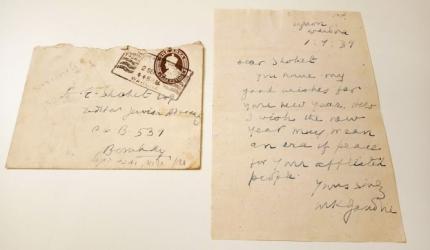 A. E. Shohet Esq
Editor Jewish Advocate
P O B. 539
Bombay
2 SE
4 45 P
Segaon
Wardha
1.9.39
Dear Shohet
You have my
good wishes for
your new year. How
I wish the new
year may mean
an era of peace
for your afflicted
people.
Yours sincly
MKGandhi